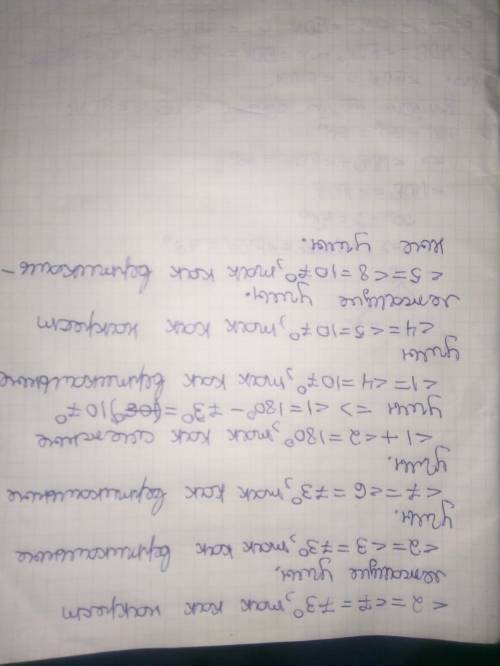 <2=<7=73°, так как накрест
лежащие углы.
<2=<3=73°, так как вертикальные
углы.
<7=<6=73°, так как вертикальные
углы.
<1+<2=180°, так как смежные
углы => <1=180°-73°= 107°
<1=<4=107°, так как вертикальные
углы
<4=<5=107°, так как накрест
лежащие углы.
<5=<8=107°, так как вертикаль-
ные углы.